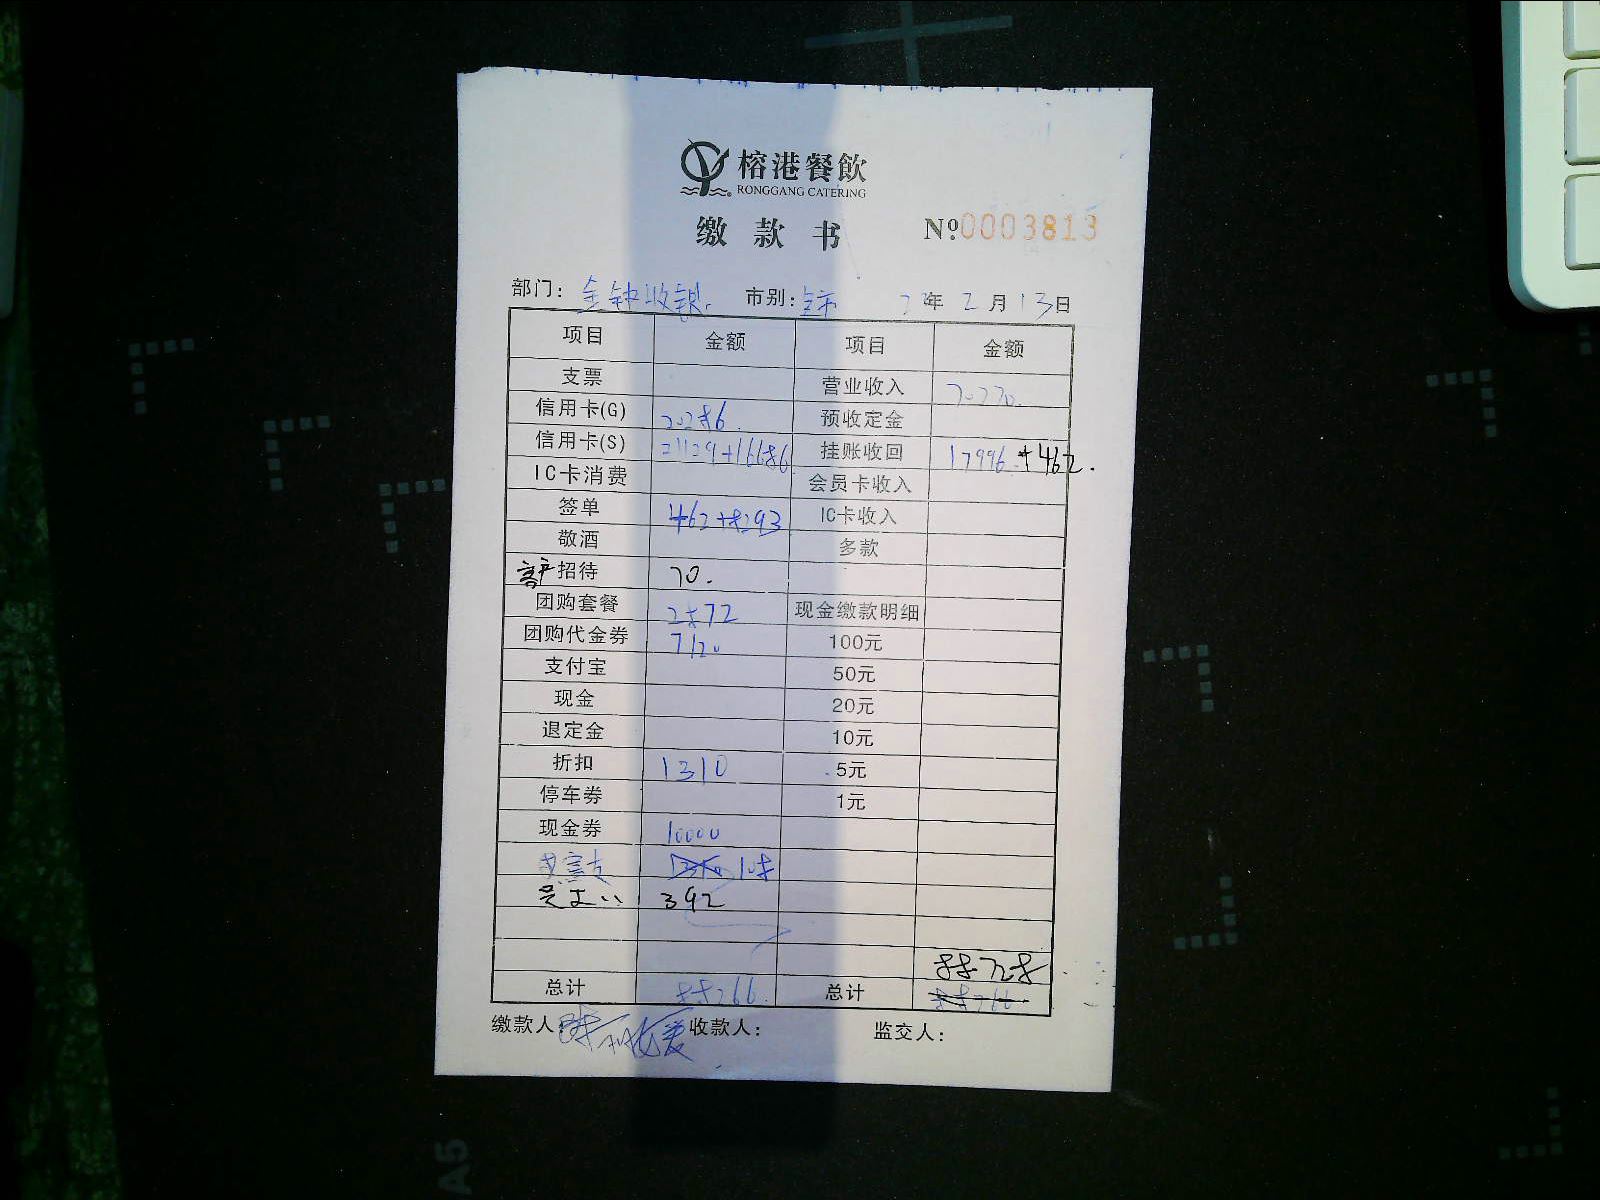 榕港餐飲
RONGGANG CATERING
缴款书 №0003813
部门：金钟收银. 市别：全市 23年2月13日
项目 金额 项目 金额
支票 营业收入 70270.
信用卡(G) 20286. 预收定金
信用卡(S) 21129+16686 挂账收回 17996.+462.
IC卡消费 会员卡收入
签单 462+8293 IC卡收入
敬酒 多款
客户招待 70.
团购套餐 2872 现金缴款明细
团购代金券 7120 100元
支付宝 50元
现金 20元
退定金 10元
折扣 1310 5元
停车券 1元
现金券 10000
108
392
88728
总计 88266. 总计 88266
缴款人： 收款人： 监交人：
A5